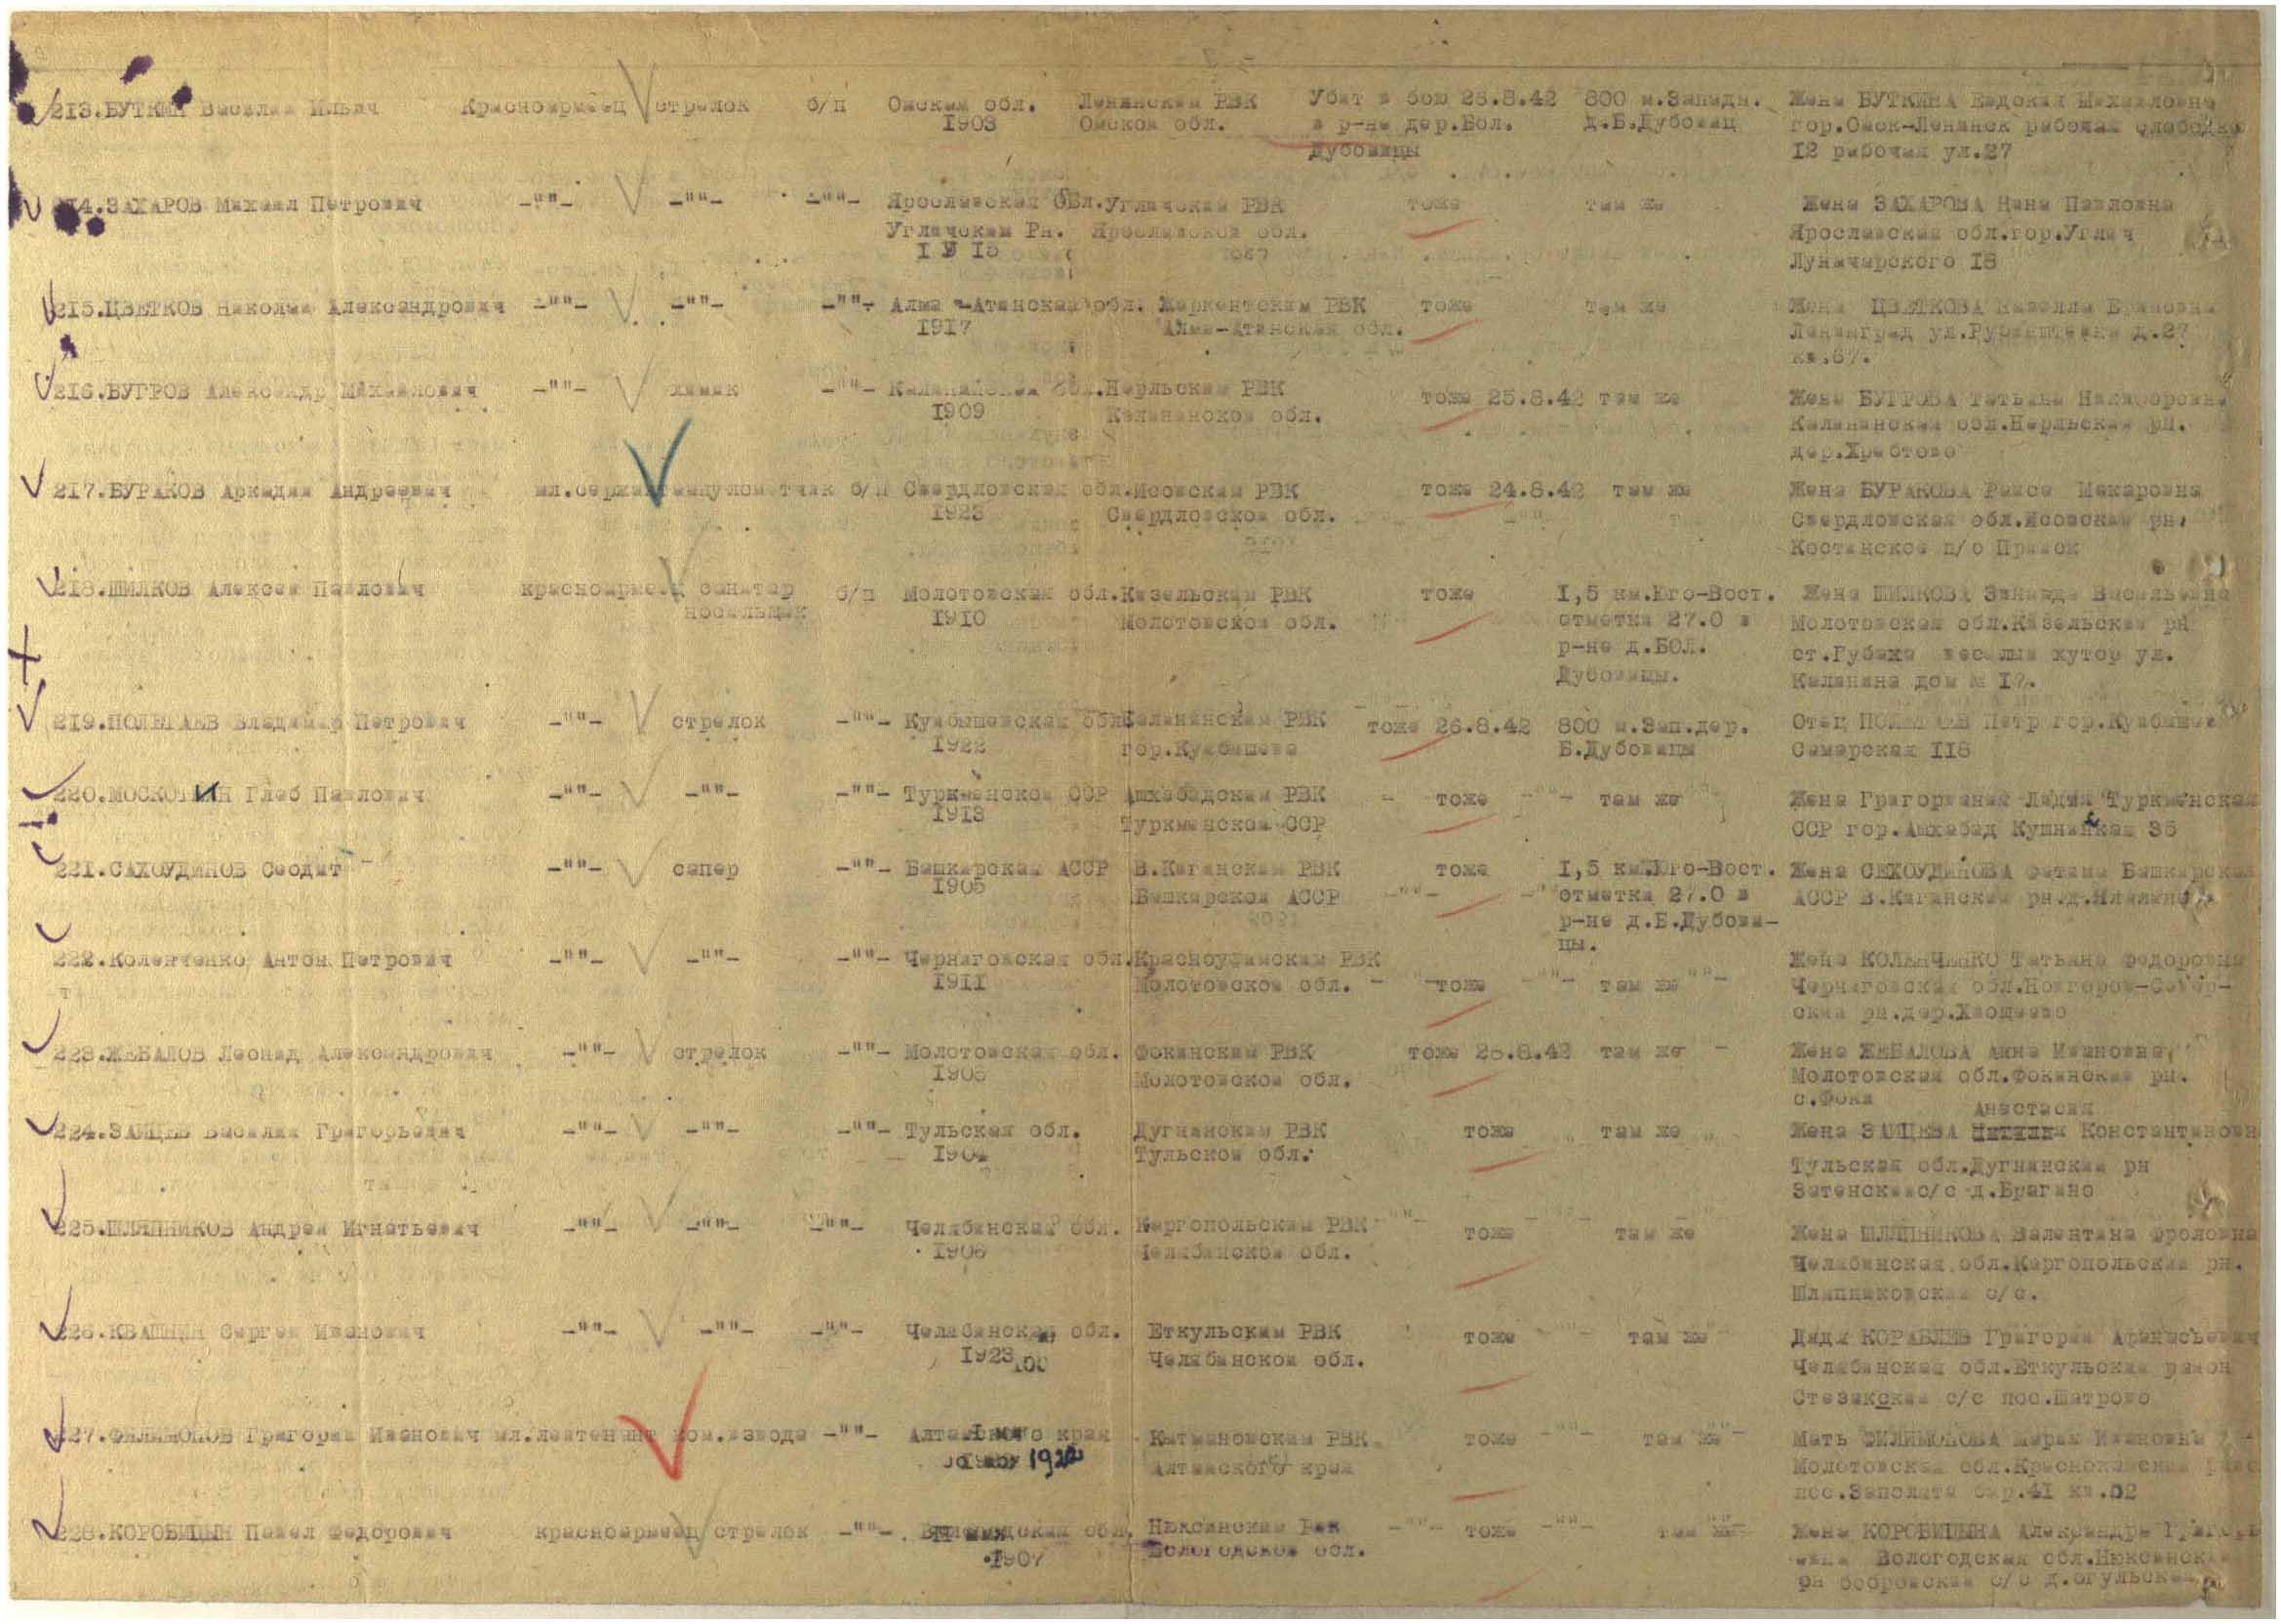 213.БУТКИН Василий Ильич Красноармеец стрелок б/п Омская обл. Ленинский РВК Убит в бою 25.8.42 800 м.Западн. Жена БУТКИНА Евдокия Михайловна
1903 Омской обл. в р-не дер.Бол. д.Б.Дубовиц гор.Омск-Ленинск рабочая слободка
Дубовицы 12 рабочая ул.27
214.ЗАХАРОВ Михаил Петрович -""- -""- -""- Ярославская обл. Угличский РВК тоже там же Жена ЗАХАРОВА Нина Павловна
Угличский Рн. Ярославской обл. Ярославская обл.гор.Углич
1915 Луначарского 18
215.ЦВЕТКОВ Николай Александрович -""- -""- -""- Алма-Атинская обл. Жаркентский РВК тоже там же Жена ЦВЕТКОВА
1917 Алма-Атинская обл. Ленинград ул.Рубинштейна д.27
216.БУГРОВ Александр Михайлович -""- химик -""- Калининская обл. Нерльский РВК тоже 25.8.42 там же Жена БУГРОВА Татьяна Никифоровна
1909 Калининской обл. Калининская обл.Нерльский рн.
дер.Храбтово
217.БУРАКОВ Аркадий Андреевич мл.сержант б/п Свердловская обл. Исовский РВК тоже 24.8.42 там же Жена БУРАКОВА Раиса Макаровна
1923 Свердловской обл. Свердловская обл.Исовский рн.
Костинское п/о Прииск
218.ШИЛКОВ Алексей Павлович красноармеец санитар б/п Молотовская обл. Кизельский РВК тоже 1,5 км.Юго-Вост. Жена ШИЛКОВА Зинаида Васильевна
носильщик 1910 Молотовской обл. отметка 27.0 в Молотовская обл.Кизельский рн
р-не д.БОЛ. ст.Губаха веселый хутор ул.
Дубовицы. Калинина дом № 17.
219.ПОЛЕГАЕВ Владимир Петрович -""- стрелок -""- Куйбышевская обл. РВК тоже 26.8.42 800 м.Зап.дер. Отец ПОЛЕГАЕВ Петр гор.Куйбышев
1922 гор.Куйбышева Б.Дубовицы Самарская 118
220.МОСКОТИН Глеб Павлович -""- -""- -""- Туркменской ССР Ашхабадский РВК тоже -"- там же Жена Григорианая Лидия Туркменская
1913 Туркменской ССР ССР гор.Ашхабад 35
221.САХОУДИНОВ Сеодат -""- сапер -""- Башкирская АССР В.Кигинский РВК тоже 1,5 км.Юго-Вост. Жена СЕХОУДИНОВА Фатима Башкирская
1905 Башкирской АССР -""- отметка 27.0 в АССР В.Кигинский рн.
р-не д.Б.Дубови-
цы.
222.Коленченко Антон Петрович -""- -""- -""- Черниговская обл. Красноуфимский РВК Жена КОЛЕНЧЕНКО Татьяна Федоровна
1911 Молотовской обл. тоже -""- там же -""- Черниговская обл.Новгород-Север-
ский рн.дер.
223.ЖЕБАЛОВ Леонид Александрович -""- стрелок -""- Молотовская обл. Фокинский РВК тоже 26.8.42 там же Жена ЖЕБАЛОВА Анна Ивановна
1905 Молотовской обл. Молотовская обл.Фокинский рн.
с.Фоки
Анастасия
224.ЗАЙЦЕВ Василий Григорьевич -""- -""- -""- Тульская обл. Дугнинский РВК тоже там же Жена ЗАЙЦЕВА Константиновн
1904 Тульской обл. Тульская обл.Дугнинский рн
с/с д.Брагино
225.ШЛЯПНИКОВ Андрей Игнатьевич -""- -""- -""- Челябинская обл. Каргопольский РВК тоже там же Жена ШЛЯПНИКОВА Валентина Фроловна
1906 Челябинской обл. Челябинская обл.Каргопольский рн.
Шляпниковский с/с.
226.КВАШНИН Сергей Иванович -""- -""- -""- Челябинская обл. Еткульский РВК тоже там же Дядя КОРАБЛЕВ Григорий Афанасьевич
1923 Челябинской обл. Челябинская обл.Еткульский район
с/с пос.Шатрово
227.ФИЛИМОНОВ Григорий Иванович мл.лейтенант ком.взвода -""- край Кытмановский РВК тоже -""- там же Мать ФИЛИМОНОВА Мария Ивановна
1922 Алтайского края Молотовская обл.Краснокамский
кв.52
228.КОРОБИЦЫН Павел Федорович красноармеец стрелок -""- обл. Нюксенский Рвк -""- тоже -""- там же Жена КОРОБИЦЫНА Александра
1907 Вологодской обл. Вологодская обл.Нюксенский
рн бобровский с/с